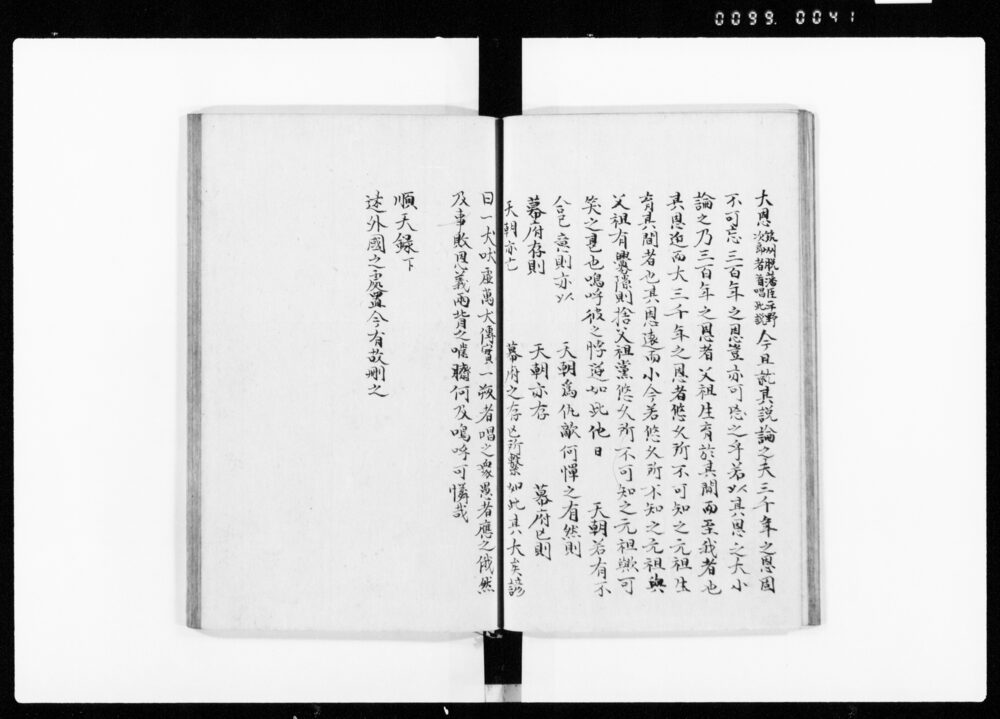 0099.0041
大恩筑州脱藩臣平野
次郎者首唱此説今且就其説論之夫三千年之恩固
不可忘三百年之恩豈亦可忘之乎若以其恩之大小
論之乃三百年之恩者父祖生育於其間而至我者也
其恩近而大三千年之恩者悠久所不可知之元祖生
育其間者也其恩遠而小今若悠久所不知之元祖與
父祖有釁隙則捨父祖黨悠久所不可知之元祖歟可
笑之甚也嗚呼彼之悖逆如此他日 天朝若有不
合己意則亦以 天朝為仇敵何憚之有然則
幕府存則 天朝亦存 幕府亡則
天朝亦亡 幕府之存亡所繫如此其大矣諺
曰一犬吠虚萬犬傳實一叛者唱之衆愚者應之俄然
及事敗恩義兩背之噬臍何及嗚呼可憐哉
順天録下
述外國之處置今有故删之